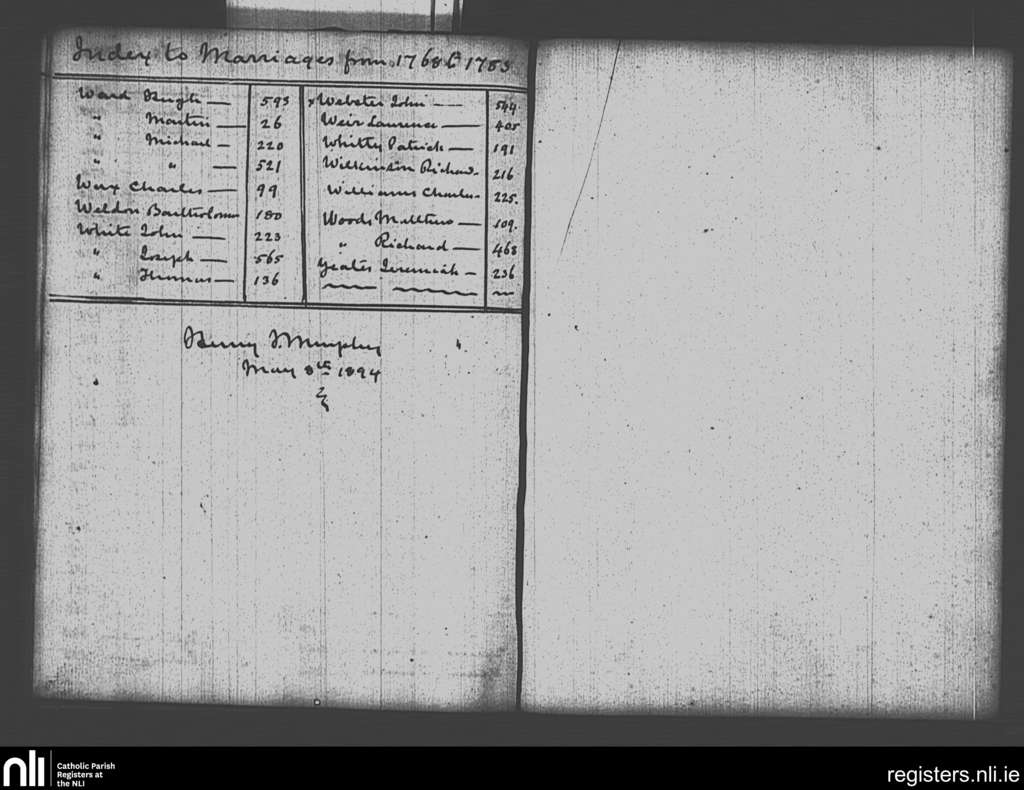 Index to Marriages from 1768 to 1783
Ward Hugh — 593
" Martin — 26
" Michael — 220
" " — 521
Wax Charles — 99
Weldon Bartholomew 180
White John — 223
" Joseph — 565
" Thomas — 136
x Webster John — 544
Weir Laurence — 405
Whitty Patrick — 191
Wilkinson Richard - 216
Williams Charles - 225.
Woods Matthew — 109.
" Richard — 468
Yeates Jeremiah — 236
Henry J. Murphy
May 8th 1894
nli
Catholic Parish
Registers at
the NLI
registers.nli.ie